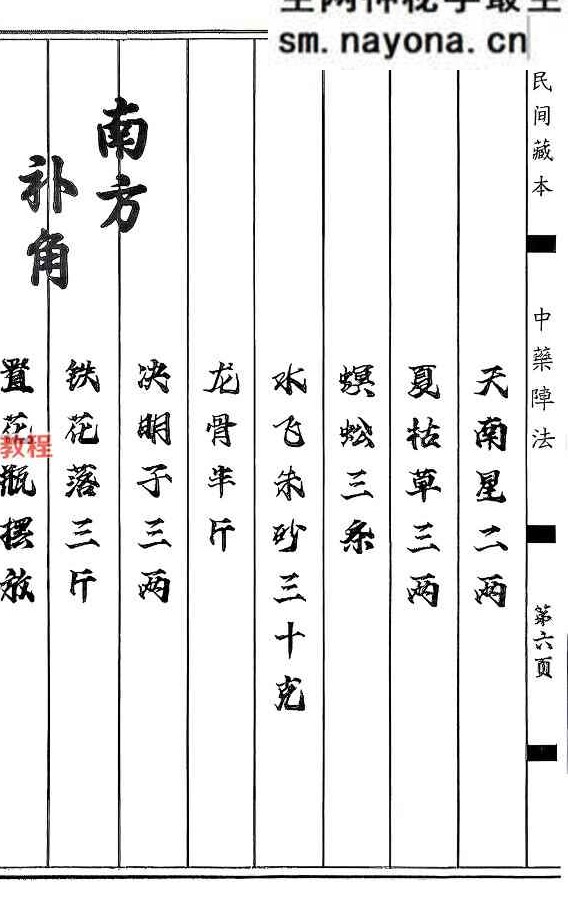 sm.nayona.cn
民间藏本
中藥陣法
第六頁
天南星二两
夏枯草三两
螟蚣三条
水飞朱砂三十克
龙骨半斤
决明子三两
南方
铁花落三斤
补角
置花瓶摆放
教程